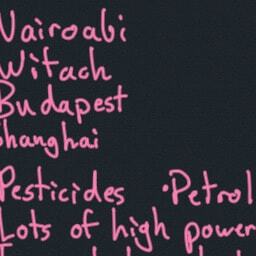 Nairoabi
Witach
Budapest
Shanghai
Pesticides •Petrol
Lots of high power